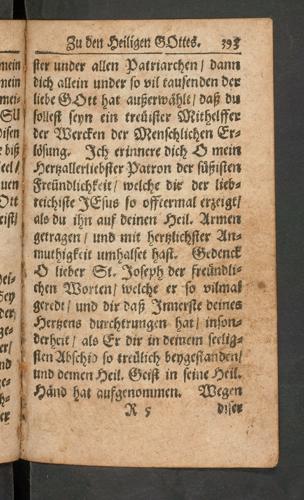 Zu den Heiligen GOttes. 393
ster under allen Patriarchen / dann
dich allein under so vil tausenden der
liebe GOtt hat außerwählt / daß du
sollest seyn ein treüister Mithelffer
der Wercken der Menschlichen Er-
lösung. Ich erinnere dich O mein
Hertzallerliebster Patron der süßisten
Freündlichkeit / welche dir der lieb-
reichiste JEsus so offtermal erzeigt /
als du ihn auf deinen Heil. Armen
getragen / und mit hertzlichster An-
muthigkeit umhalset hast. Gedenck
O lieber St. Joseph der freündli-
chen Worten / welche er so vilmal
geredt / und dir daß Innerste deines
Hertzens durchtrungen hat / inson-
derheit / als Er dir in deinem seelig-
sten Abschid so treülich beygestanden /
und deinen Heil. Geist in seine Heil.
Händ hat aufgenommen. Wegen
R 5 diser